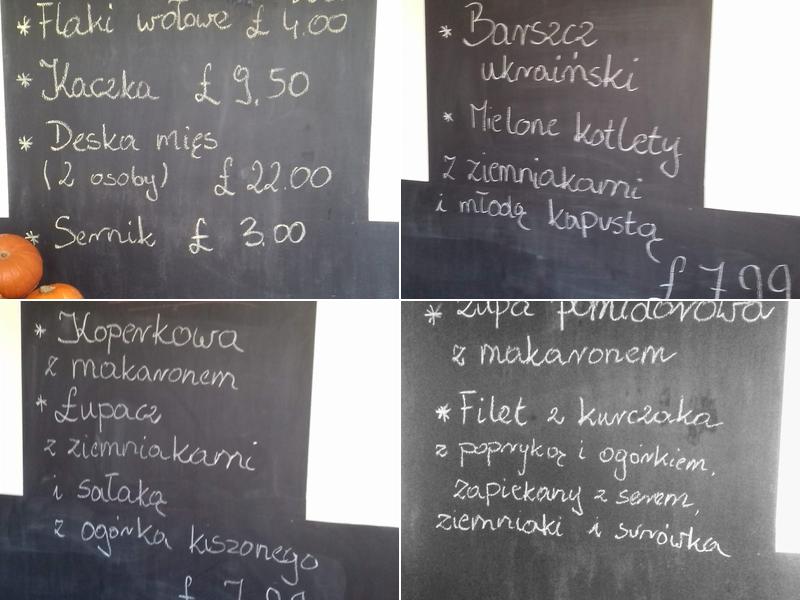 * Flaki wołowe £ 4.00
* Kaczka £ 9,50
* Deska mięs
(2 osoby) £ 22.00
* Sernik £ 3.00
* Barszcz
ukraiński
* Mielone kotlety
z ziemniakami
i młodą kapustą
£ 7,99
* Koperkowa
z makaronem
* Łupacz
z ziemniakami
i sałaką
z ogórka kiszonego
£ 7,99
* Zupa pomidorowa
z makaronem
* Filet z kurczaka
z papryką i ogórkiem,
zapiekany z serem,
ziemniaki i surówka